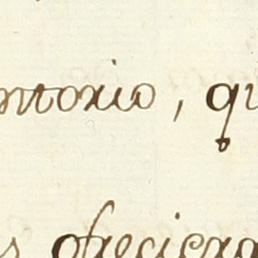 ntorio, qu
s ofreciera